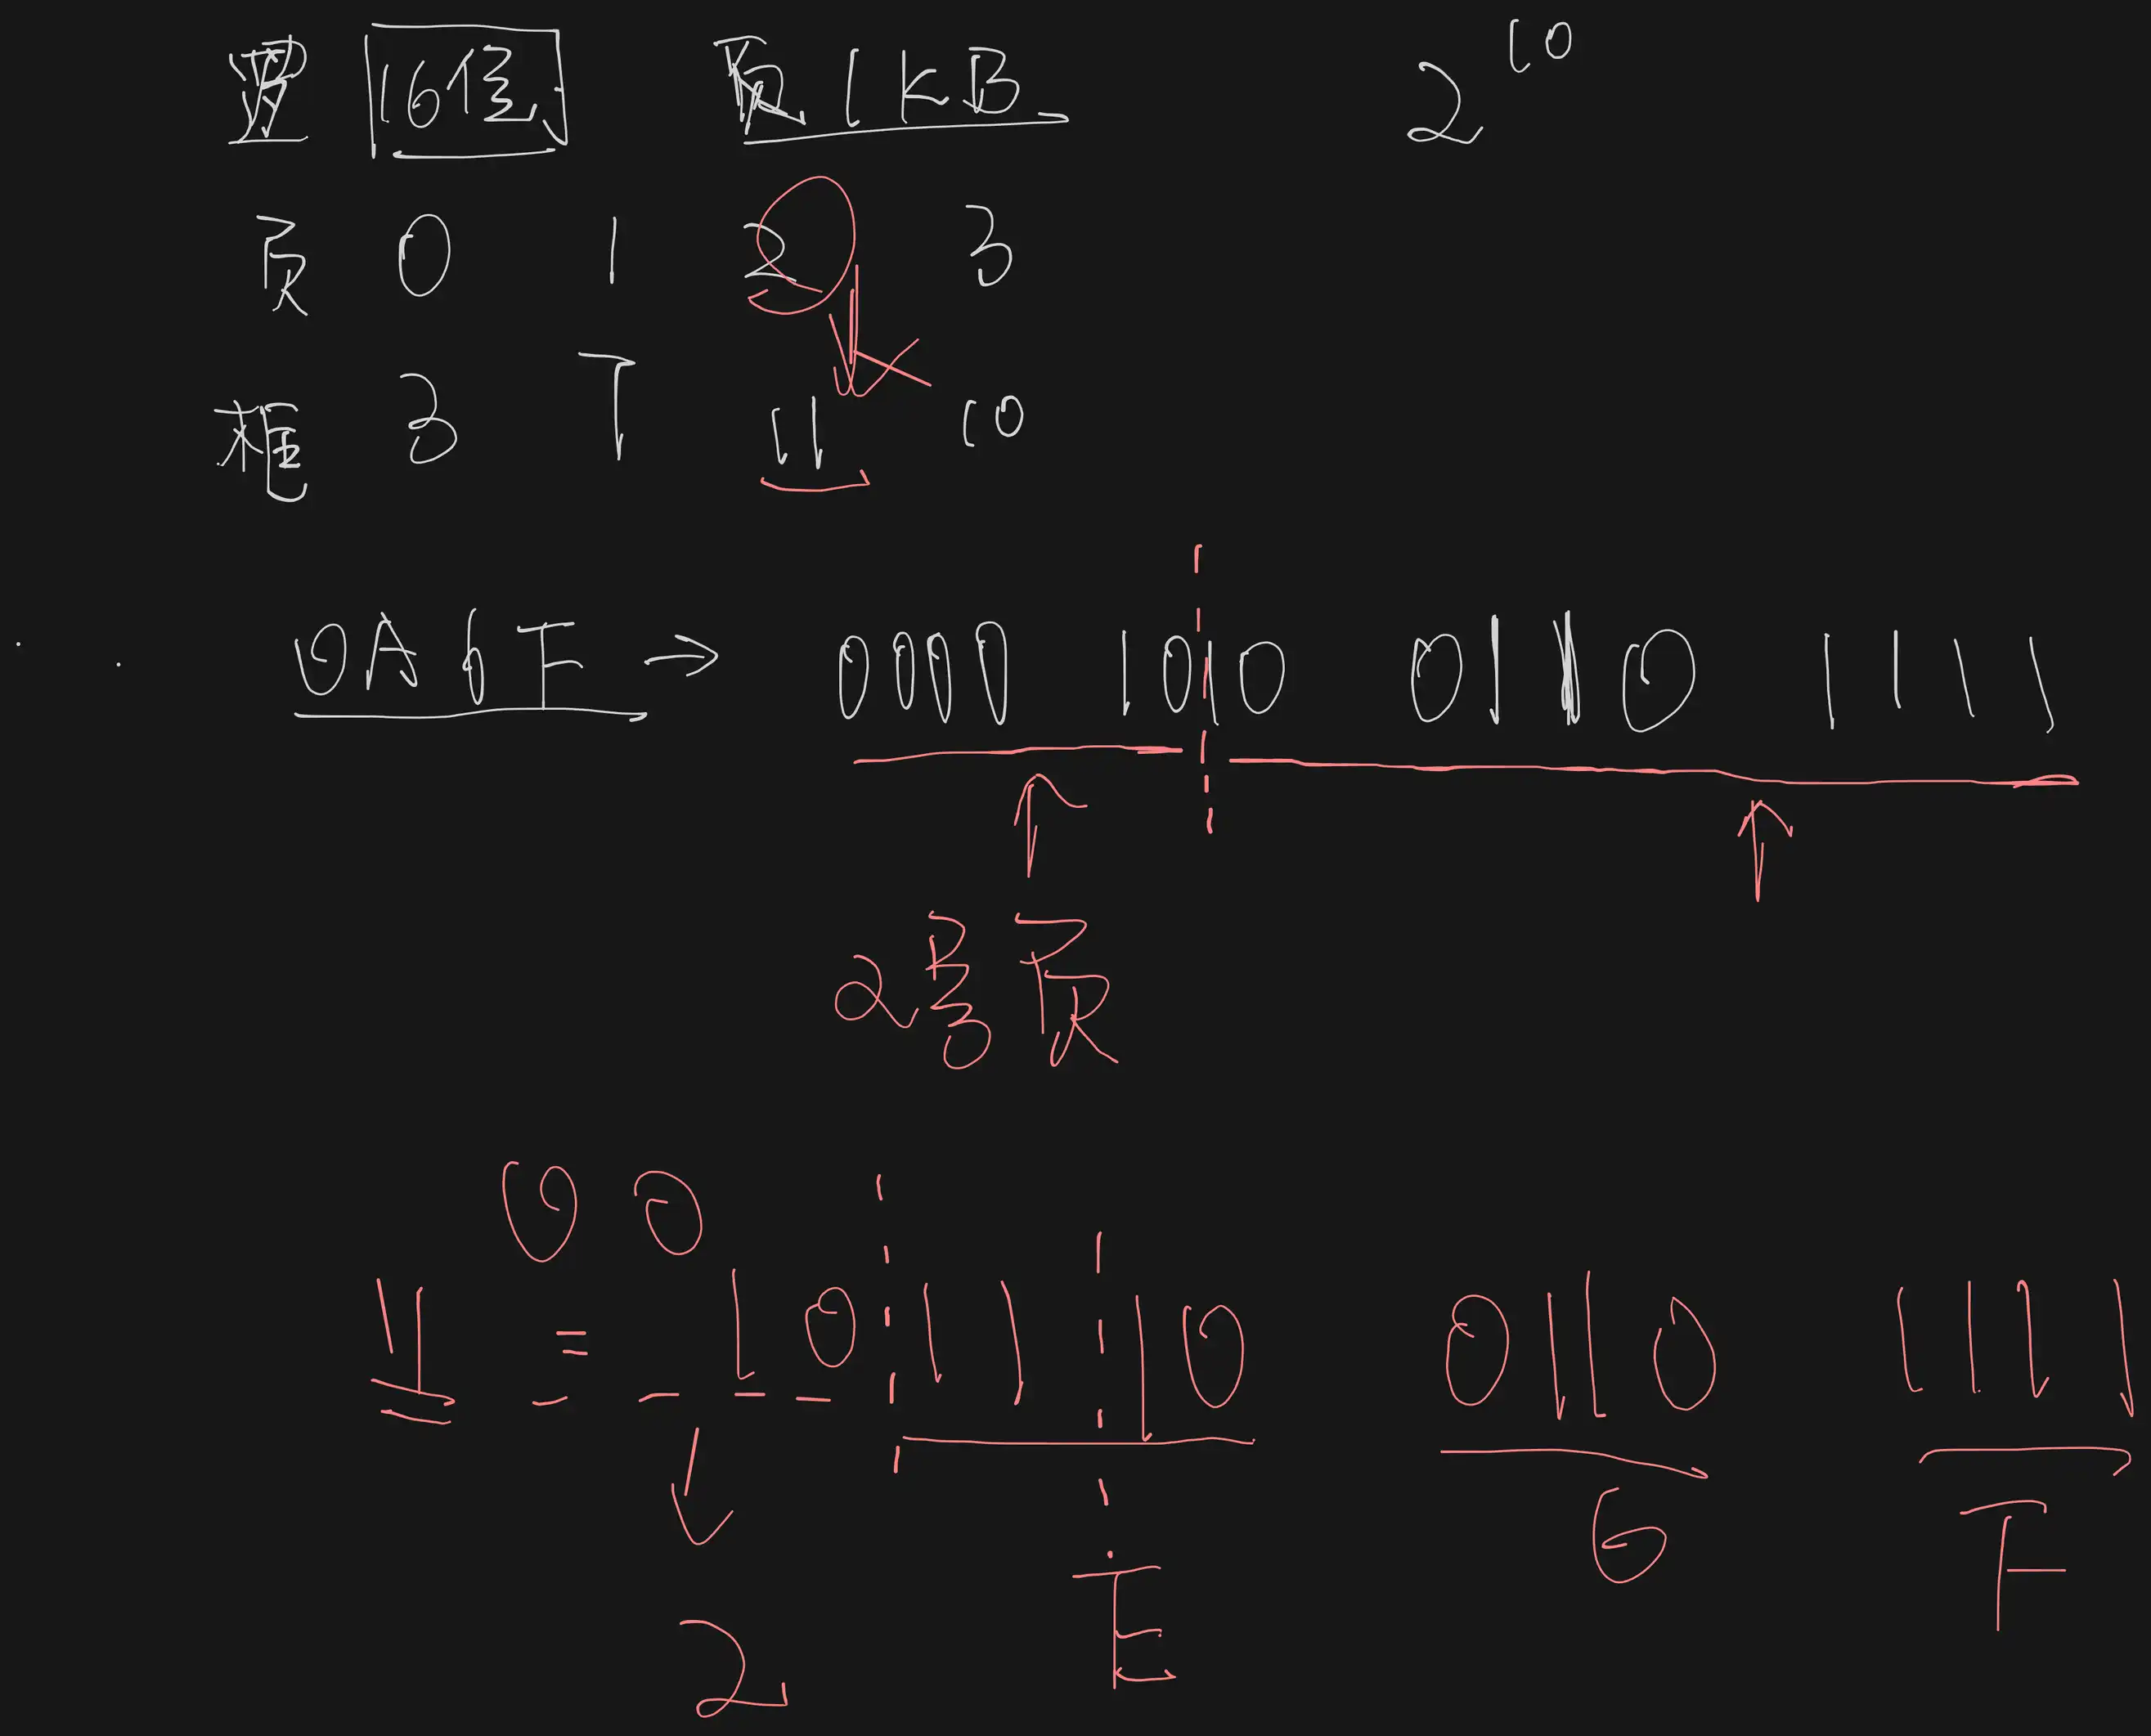 16位 1KB 2^10
页 0 1 2 3
框 3 7 11 10
0A6F → 0000 1010 0110 1111
2号页
00
11 = 10 11 10 0110 1111
2 E 6 F